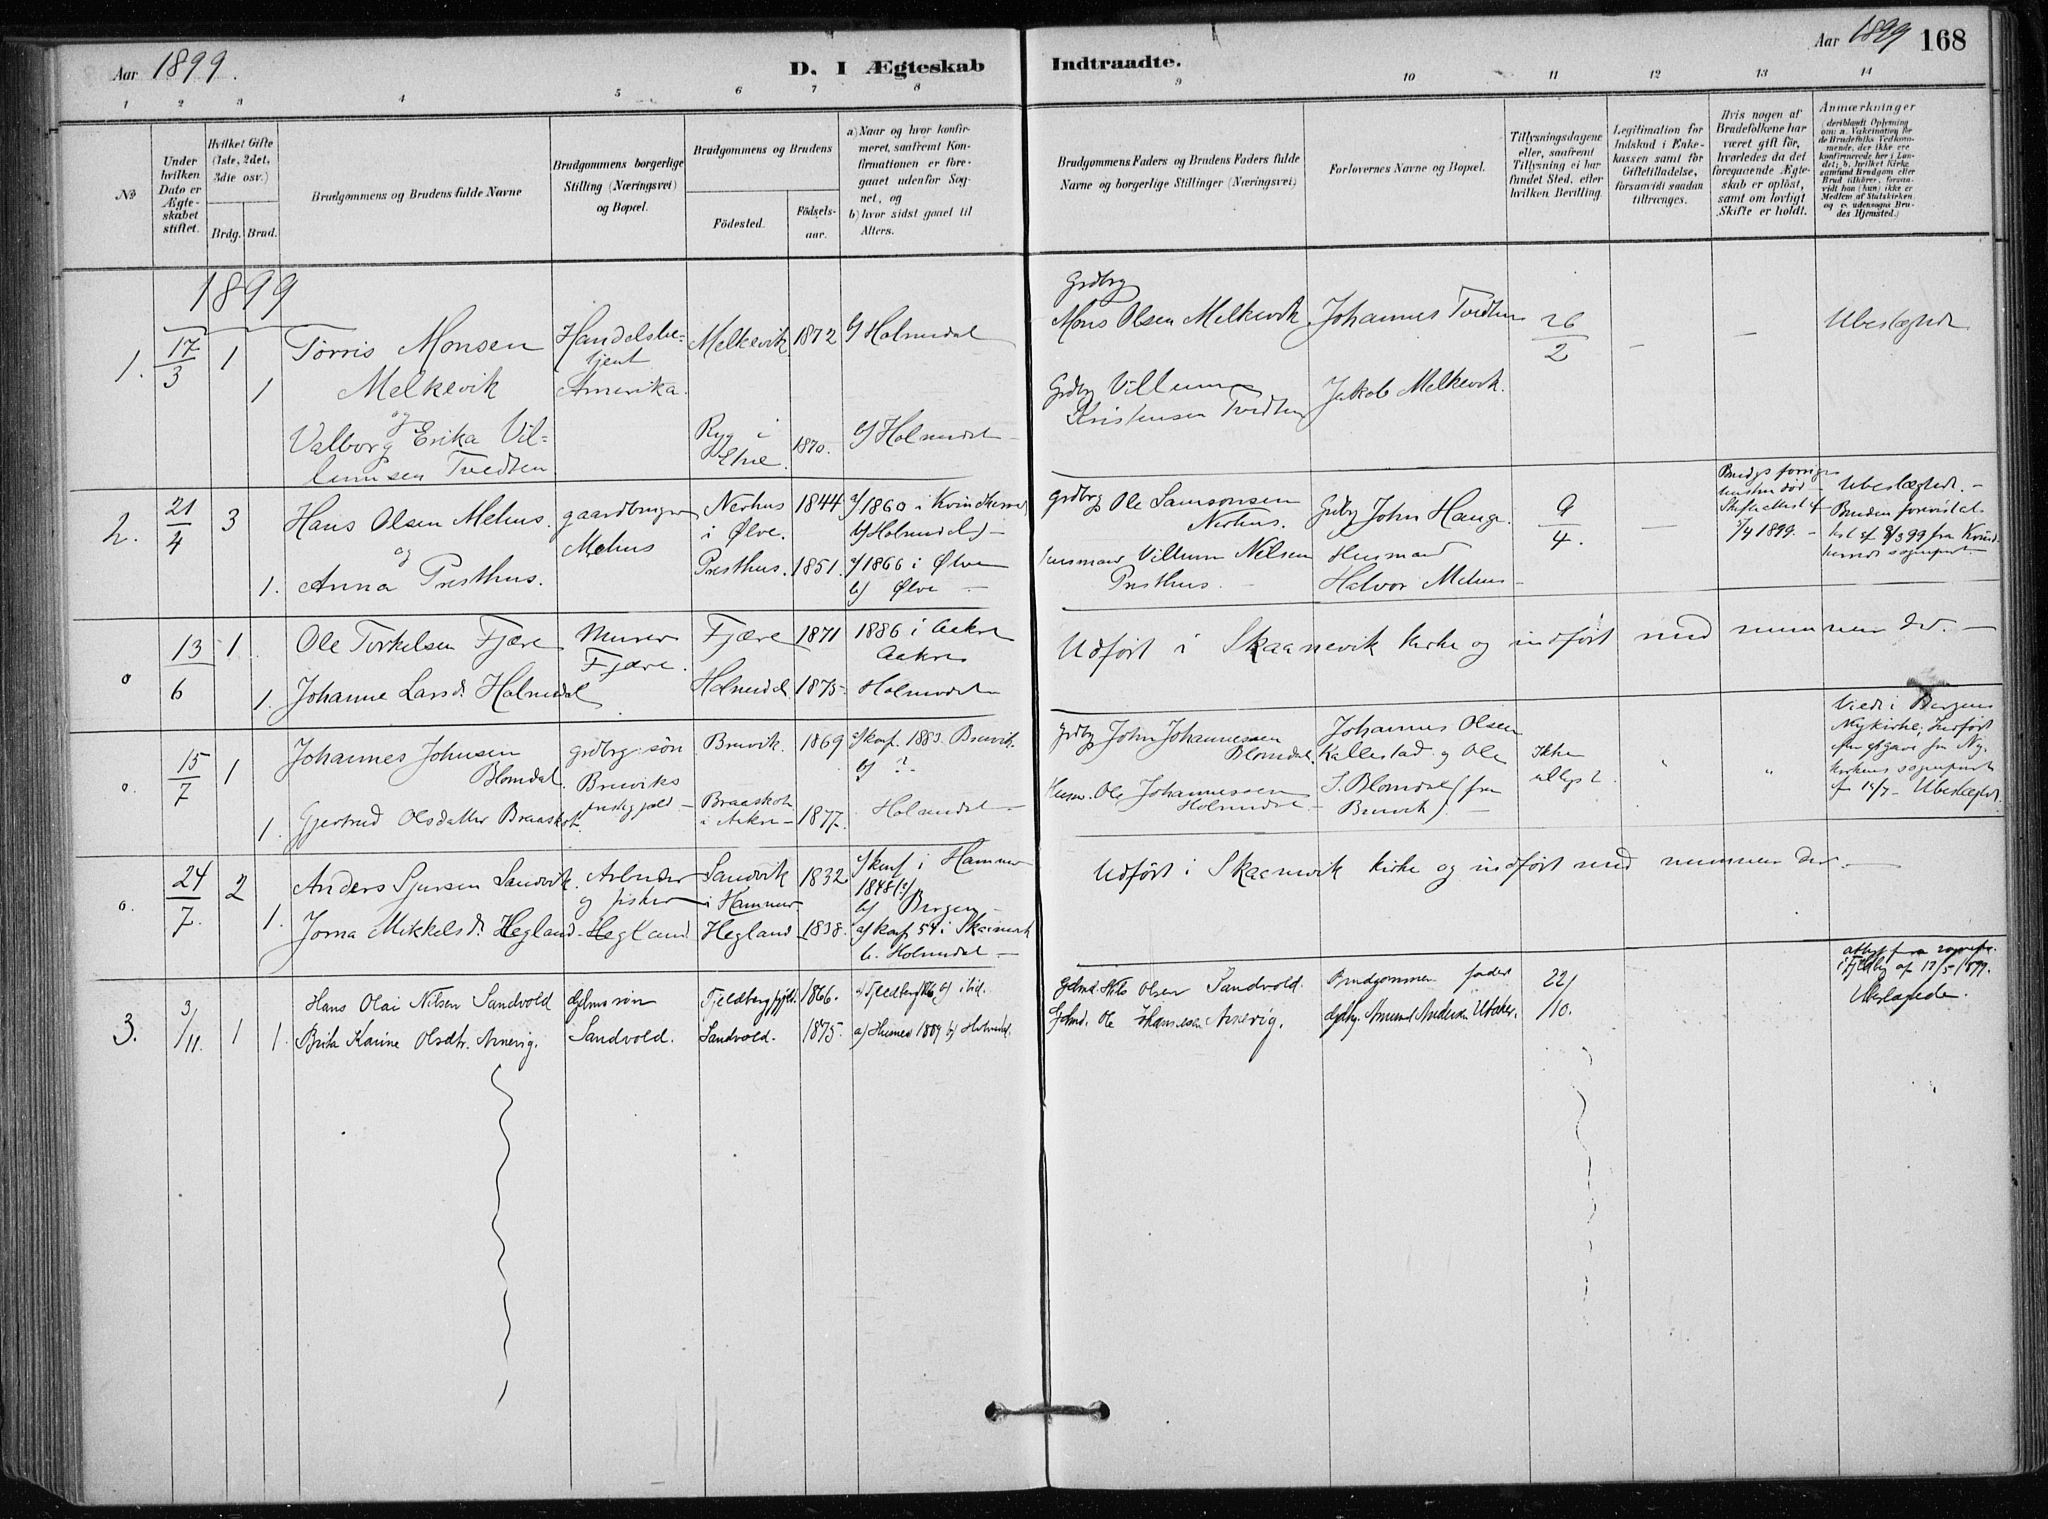 Aar 1899.
D. I Ægteskab
Indtraadte.
Aar 1899
168
1 2 3 4 5 6 7 8 9 10 11 12 13 14
No
Under
hvilken
Dato er
Ægte-
skabet
stiftet.
Hvilket Gifte
(1ste, 2det,
3die osv.)
Brdg. Brud.
Brudgommens og Brudens fulde Navne
Brudgommens borgerlige
Stilling (Næringsvei)
og Bopæl.
Brudgommens og Brudens
Fødested.
Fødsels-
aar.
a) Naar og hvor konfir-
meret, saafremt Kon-
firmationen er fore-
gaaet udenfor Sog-
net, og
b) hvor sidst gaaet til
Alters.
Brudgommens Faders og Brudens Faders fulde
Navne og borgerlige Stillinger (Næringsvei)
Forlovernes Navne og Bopæl.
Tillysningsdagene
eller, saafremt
Tillysning ei har
fundet Sted, efter
hvilken Bevilling.
Legitimation for
Indskud i Enke-
kassen samt for
Giftetilladelse,
forsaavidt saadan
tiltrænges.
Hvis nogen af
Brudefolkene har
været gift før,
hvorledes da det
foregaaende Ægte-
skab er opløst,
samt om lovligt
Skifte er holdt.
Anmærkninger
(deriblandt Oplysning
om: a. Vakcination for
de Brudefolks Vedkom-
mende, der ikke ere
konfirmerede her i Lan-
det; b. hvilket Kirke-
samfund Brudgom eller
Brud tilhører, forsaa-
vidt han (hun) ikke er
Medlem af Statskirken,
og c. udensogns Bru-
des Hjemsted.)
1899
1. 17/3 1 Tørris Monsen
Melkevik
og
1 Valborg Erika Vil-
lumsen Tvedten
Handelsbe-
tjent
Amerika.
Melkevik. 1872 b) Holmedal
Ryg i
Etne. 1870. b) Holmedal
Grdbrg
Mons Olsen Melkevik
Grdbrg Villum
Kristensen Tvedten
Johannes Tvedten
Jakob Melkevik.
26/2 – –
Ubeslægtede
2. 21/4 3 Hans Olsen Mehus.
og
1. Anna Presthus.
gaardbruger
Mehus
Nerhus
i Ølve.
1844 a) 1860 i Kvindherred
b) Holmedal
Presthus. 1851. a) 1866 i Ølve
b) Ølve –
grdbrg Ole Samsonsen
Nerhus.
husmand Villum Nilsen
Presthus.
Grdbr John Hauge
Husmand
Halvor Mehus
9/4. –
Brudg. forrige
hustru død –
Skifteattest af
/4 1899. –
Ubeslægtede. –
Bruden forevist at-
test af 8/3 99 fra Kvind-
herreds sogneprest
o 13/6 1 Ole Torkelsen Fjære
1. Johanne Larsd. Holmedal
Murer
Fjære.
Fjære 1871 1886 i Aakre
Aakre
Holmedal 1875. Holmedal
Udført i Skaanevik kirke og indført med nummer der. –
o. 15/7 1 Johannes Johnsen
Blomdal
1. Gjertrud Olsdatter Braaskot.
grdbrg. søn
Breviks
prestegjeld –
Brevik. 1869 a) konf. 1883. Brevik.
b) ?
Braaskot
i Aakre – 1877. Holmedal –
Grdbrg John Johannessen
Blomdal.
Husm. Ole Johannessen
Holmedal –
Johannes Olsen
Kallestad og Ole
S. Blomdal (fra
Brevik) –
Ikke
tillyst
" "
Viede i Bergens
Nykirke; Indført
efter opgave fra Ny-
kirkens sogneprest
af 15/7 – Ubeslægtede.
o. 24/7. 2 Anders Sjursen Sandvik.
1. Jorna Mikkelsd. Hegland
Arbeider
og fisker
Hegland
Sandvik
i Hammer
1832 a) konf i Hammer
1848 (?)
b) Bergen –
Hegland 1838. a) konf 54 i Skaanevik
b. Holmedal –
Udført i Skaanevik kirke og indført med nummer der. –
3. 3/11 1 1. Hans Olai Nilsen Sandvold
Brita Karine Olsdtr. Arnevig.
Gdmd søn
Sandvold.
Fjeldberg pgjld. 1866. a) Fjeldberg b) ibid.
Sandvold. 1875. a) Husnes 1889 b) Holmedal.
Gdmd. Nils Olsen Sandvold.
Gdmd. Ole Arnevig.
Brudgommens fader
Gdbg. Amund Andersen Utaker.
22/10.
attest fra sognepr.
i Fjelbg af 12/5 1899.
Ubeslægtede.